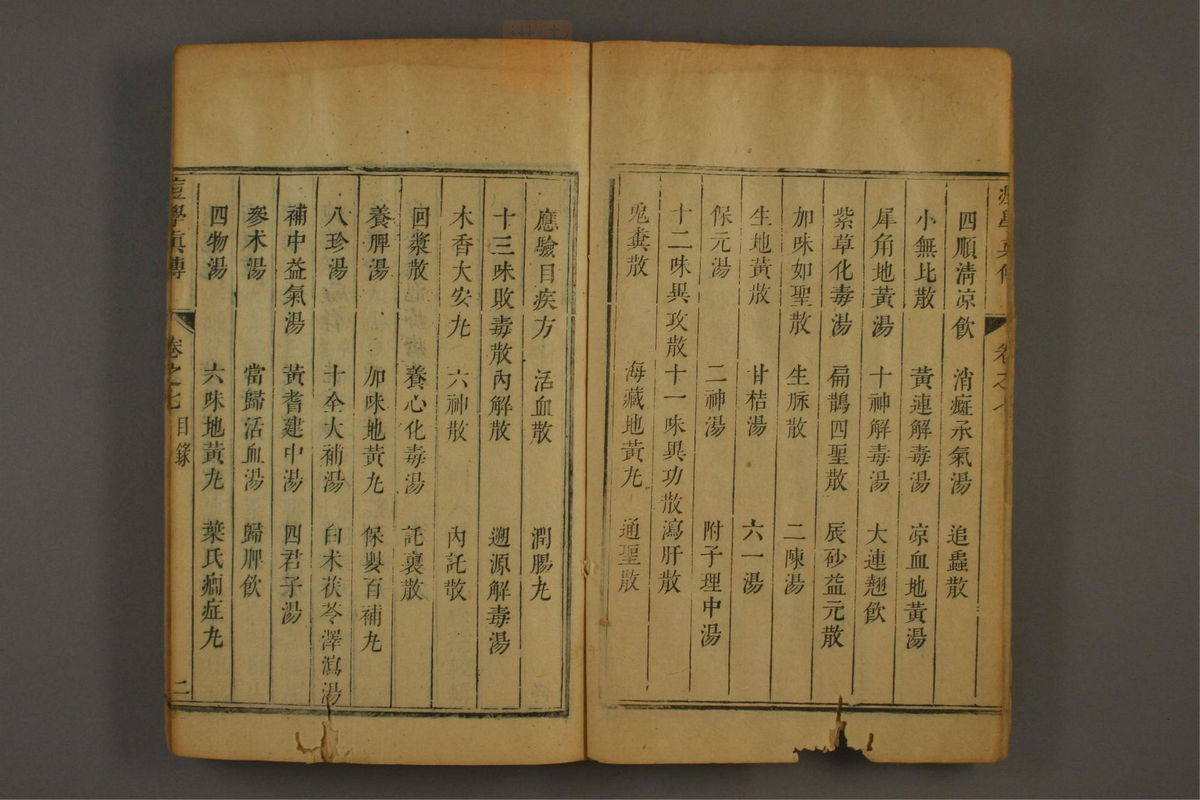 四順清凉飲　消癍承氣湯　追蟲散
小無比散　黃連解毒湯　凉血地黃湯
犀角地黃湯　十神解毒湯　大連翹飲
紫草化毒湯　扁鵲四聖散　辰砂益元散
加味如聖散　生脉散　二陳湯
生地黃散　甘桔湯　六一湯
保元湯　二神湯　附子理中湯
十二味異攻散　十一味異功散　瀉肝散
兎糞散　海藏地黃九　通聖散
應驗目疾方　活血散　潤腸九
十三味敗毒散　內解散　遡源解毒湯
木香大安九　六神散　內託散
回漿散　養心化毒湯　託裏散
養脾湯　加味地黃九　保嬰百補九
八珍湯　十全大補湯　白术茯苓澤瀉湯
補中益氣湯　黃耆建中湯　四君子湯
參术湯　當歸活血湯　歸脾飲
四物湯　六味地黃九　葉氏痼症九
痘學眞傳　卷之七　目錄　二